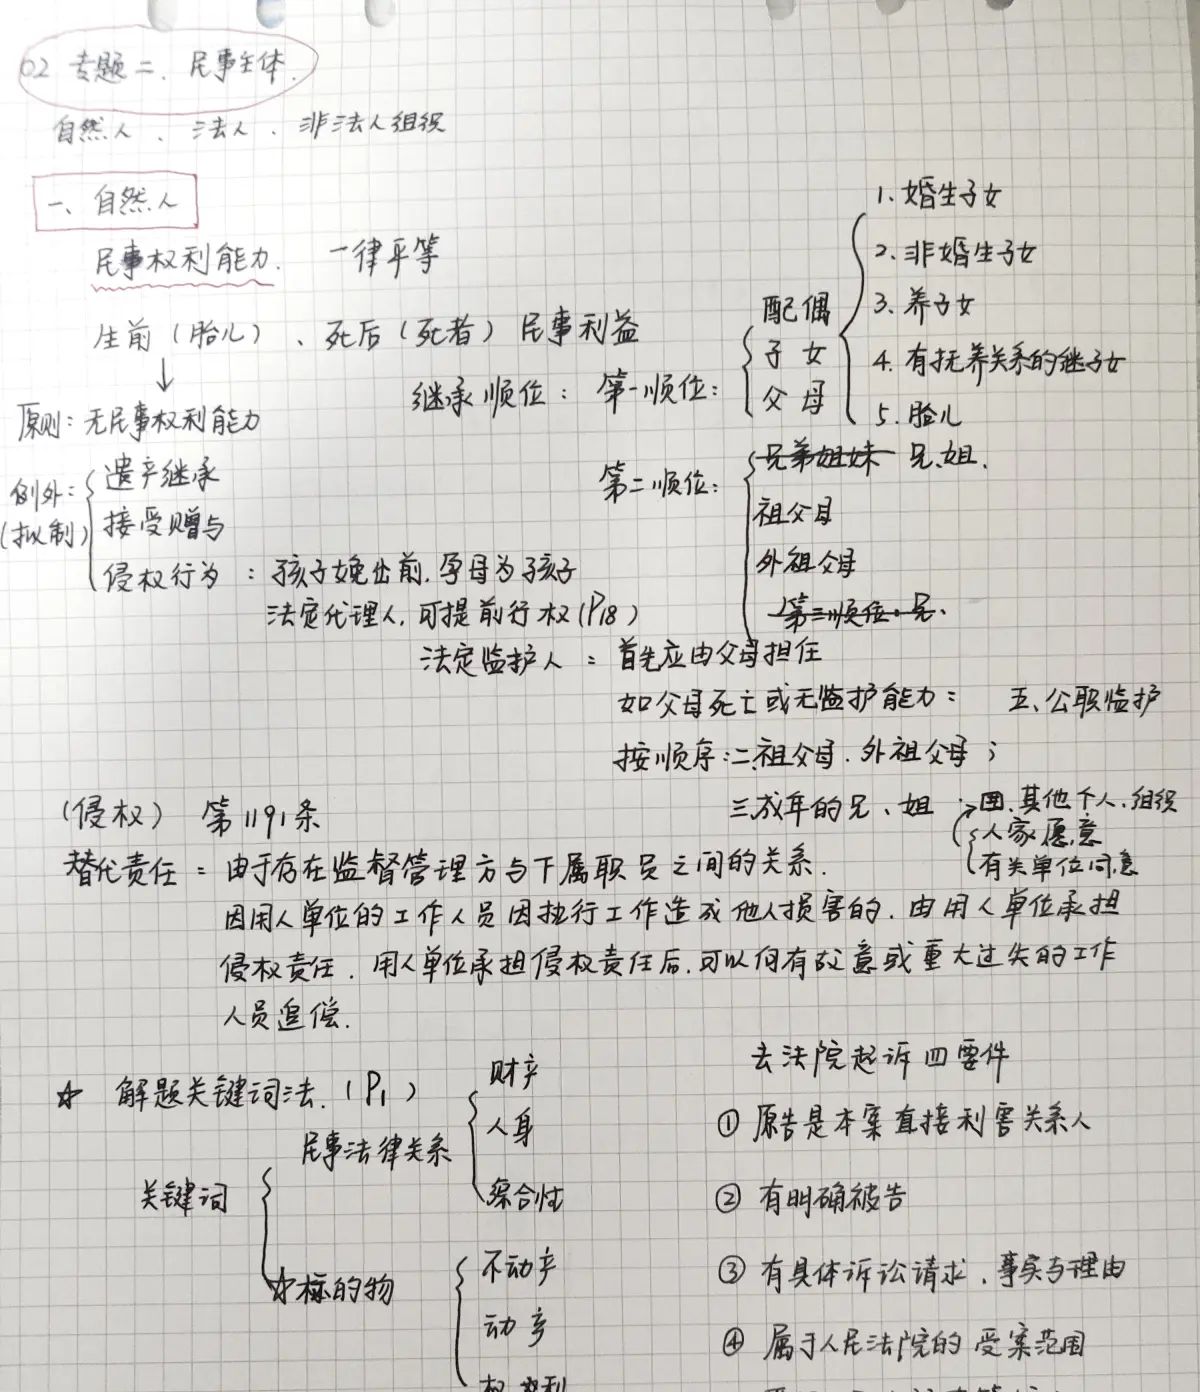 02 专题二、民事主体.
自然人、法人、非法人组织
一、自然人
民事权利能力. 一律平等
生前(胎儿)、死后(死者)民事利益
↓
原则:无民事权利能力
例外:(拟制)
遗产继承
接受赠与
侵权行为:孩子娩出前.孕母为孩子
法定代理人,可提前行权(P18)
继承顺位:第一顺位:
配偶
子女
父母
1.婚生子女
2.非婚生子女
3.养子女
4.有抚养关系的继子女
5.胎儿
第二顺位:
兄弟姐妹 兄、姐.
祖父母
外祖父母
第三顺位:兄.
法定监护人=首先应由父母担任
如父母死亡或无监护能力= 五、公职监护
按顺序:二.祖父母.外祖父母;
三成年的兄、姐 → 四.其他个人.组织
人家愿意
有关单位同意
(侵权) 第1191条
替代责任=由于存在监督管理方与下属职员之间的关系.
因用人单位的工作人员因执行工作造成他人损害的.由用人单位承担
侵权责任.用人单位承担侵权责任后,可以向有故意或重大过失的工作
人员追偿.
☆ 解题关键词法.(P1)
关键词
民事法律关系
财产
人身
综合性
☆标的物
不动产
动产
权利
去法院起诉四要件
① 原告是本案直接利害关系人
② 有明确被告
③ 有具体诉讼请求、事实与理由
④ 属于人民法院的受案范围